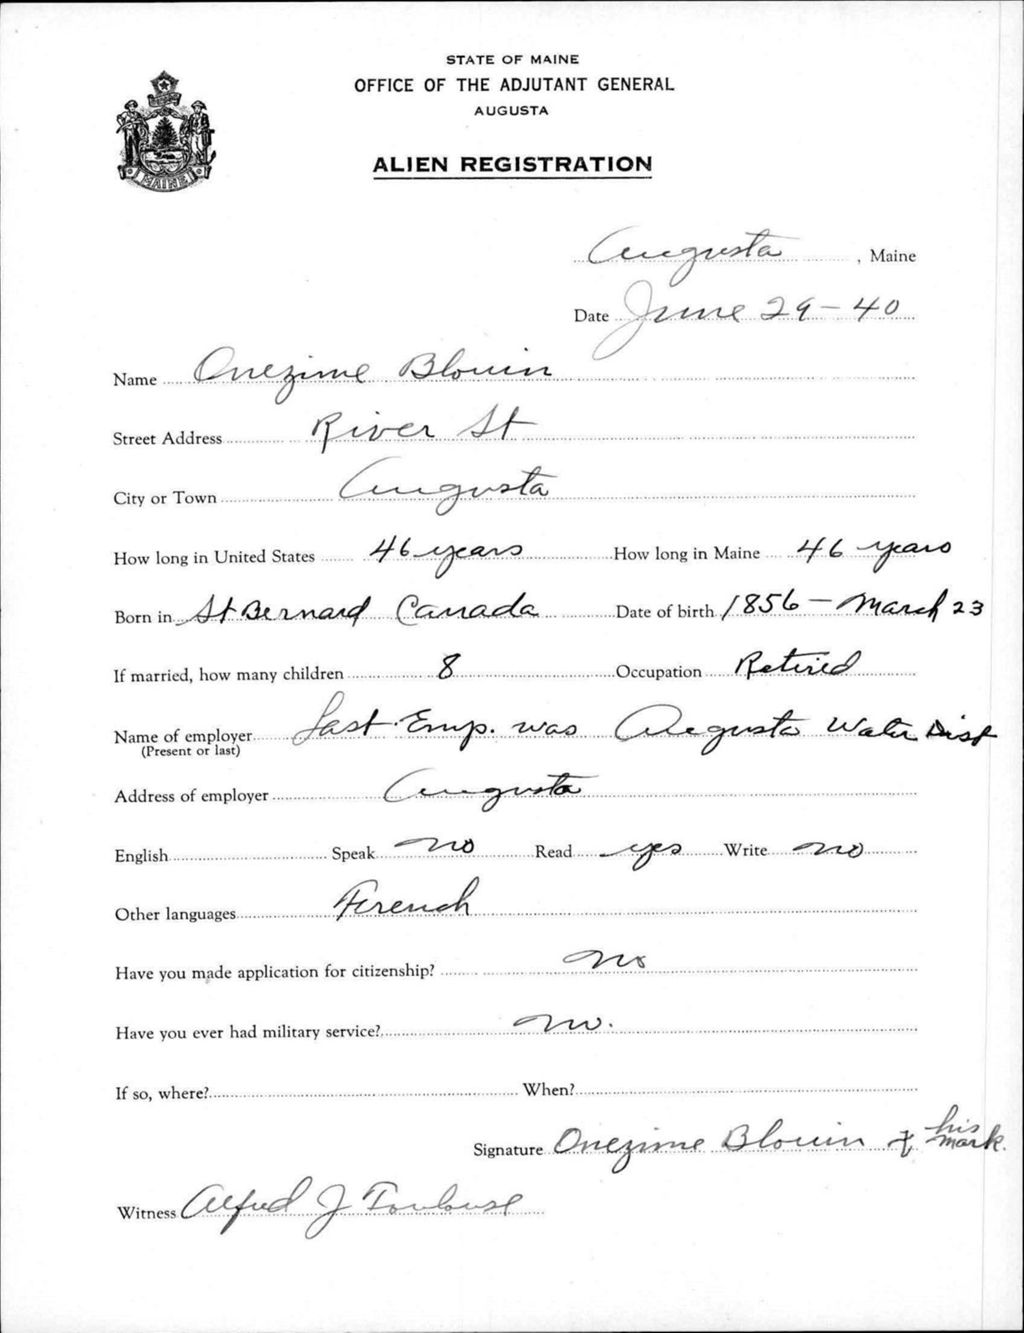 STATE OF MAINE
OFFICE OF THE ADJUTANT GENERAL
AUGUSTA
ALIEN REGISTRATION
MAINE
Augusta, Maine
Date June 29-40
Name Onezime Blouin
Street Address River St
City or Town Augusta
How long in United States 46 years How long in Maine 46 years
Born in St Bernard Canada Date of birth 1856 - March 23
If married, how many children 8 Occupation Retired
Name of employer Last Emp. was Augusta Water Dist
(Present or last)
Address of employer Augusta
English Speak no Read yes Write no
Other languages French
Have you made application for citizenship? no
Have you ever had military service? no.
If so, where? When?
Signature Onezime Blouin X his mark.
Witness Alfred J Toulouse